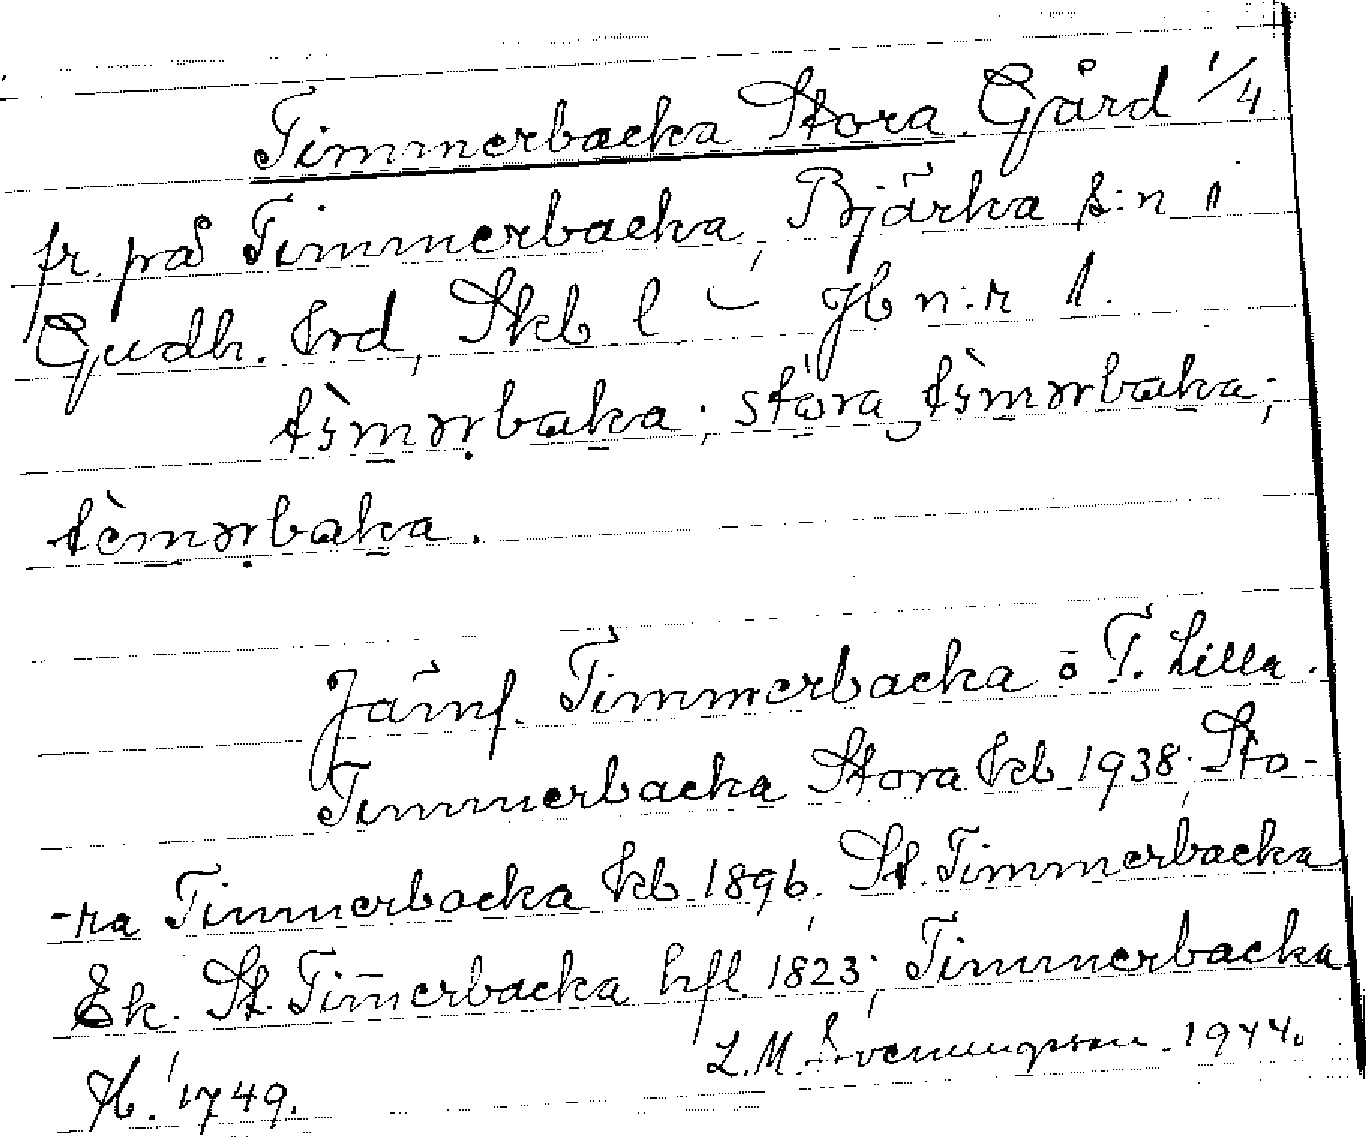 Timmerbacka Stora Gård 1/4
fr. på Timmerbacka, Bjärka s:n i
Gudh. hrd, Skb l – Jb n:r 1.
tìmərbaka; stora tìmərbaka;
tèmərbaka.
Jämf. Timmerbacka o T. Lilla.
Timmerbacka Stora kb 1938; Sto-
-ra Timmerbacka kb 1896; St. Timmerbacka
Ek. St. Tim̄erbacka hfl 1823; Timmerbacka
Jb. 1749.
L. M. Svenungsson 1944.